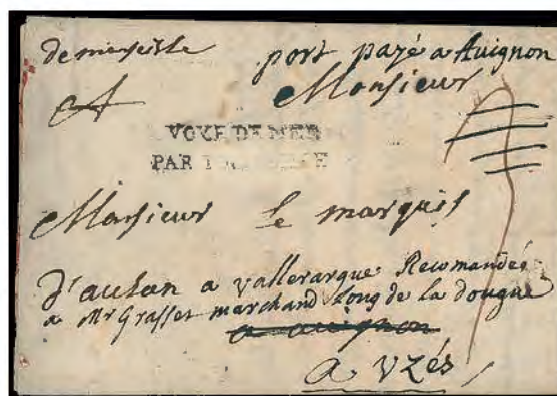 de merseille port payé a Auignon
A Monsieur
VOYE DE MER
PAR
Monsieur le marquis
d'aulan a vallerargue Recomandés
a Mr Grasset marchand long de la dougue
a auignon
a vzés